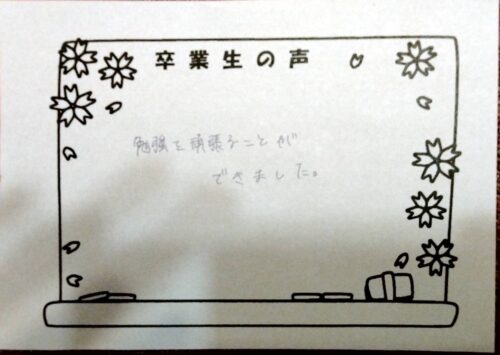 卒業生の声
勉強を頑張ることが
できました。